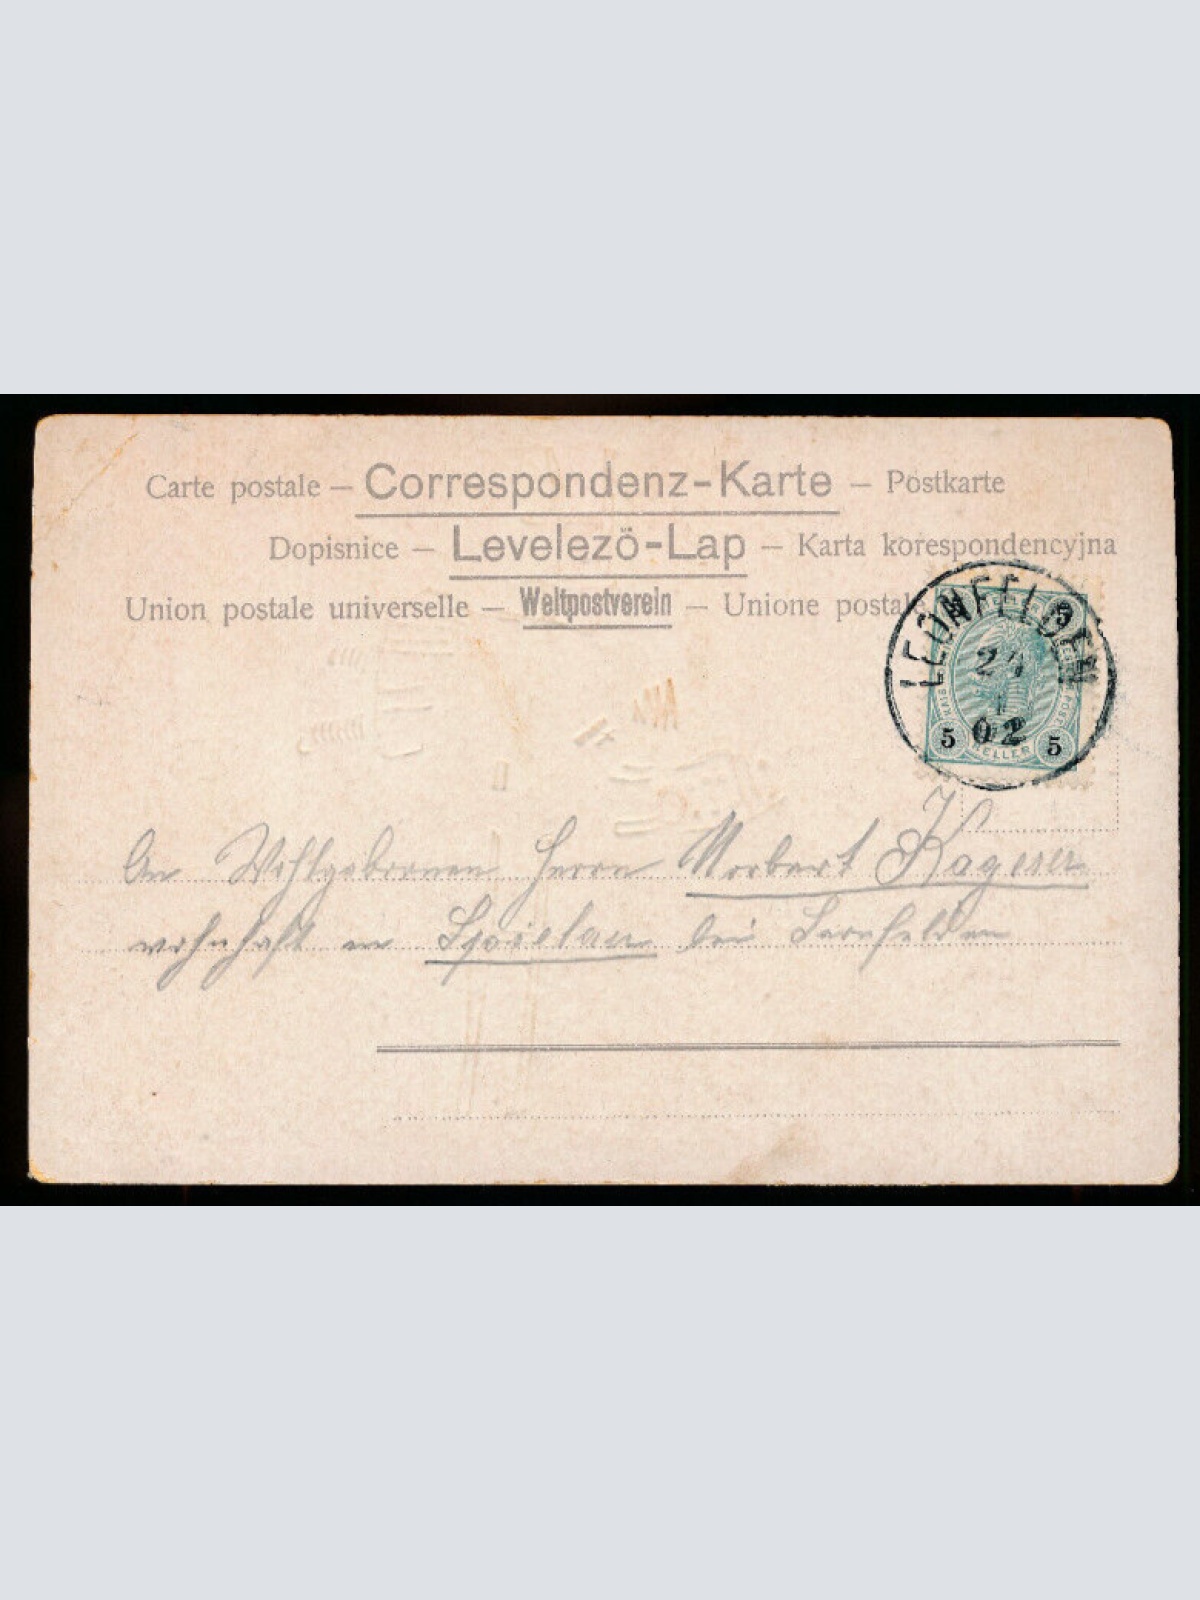 Carte postale — Correspondenz-Karte — Postkarte
Dopisnice — Levelező-Lap — Karta korespondencyjna
Union postale universelle — Weltpostverein — Unione postale
LEONFELDEN
24
1
02
5
5 HELLER 5
An Wohlgebornen Herrn Norbert Kagerer
wohnhaft in Spielau bei Leonfelden